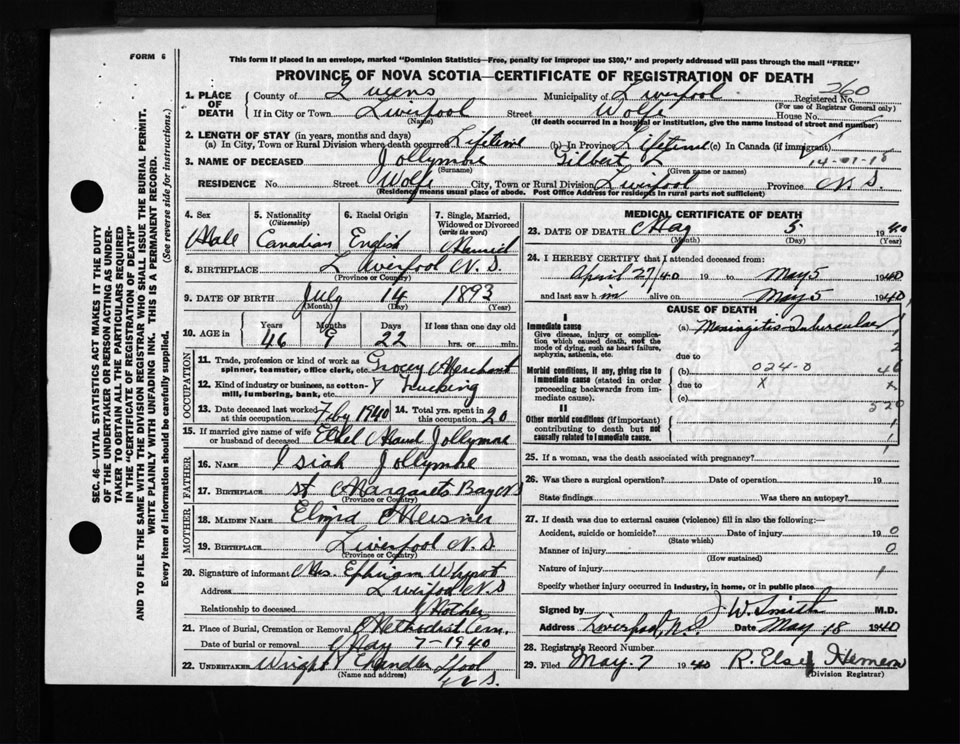 FORM 6
This form if placed in an envelope, marked "Dominion Statistics—Free, penalty for improper use $300," and properly addressed will pass through the mail "FREE"
PROVINCE OF NOVA SCOTIA—CERTIFICATE OF REGISTRATION OF DEATH
1. PLACE OF DEATH County of Queens Municipality of Liverpool Registered No. 360
(For use of Registrar General only)
If in City or Town Liverpool Street Wolfe House No.
(Name) (If death occurred in a hospital or institution, give the name instead of street and number)
2. LENGTH OF STAY (in years, months and days)
(a) In City, Town or Rural Division where death occurred Lifetime (b) In Province Lifetime (c) In Canada (if immigrant)
3. NAME OF DECEASED Jollymore Gilbert L 14-01-18
(Surname) (Given name or names)
RESIDENCE No. Street Wolfe City, Town or Rural Division Liverpool Province N.S.
(Residence means usual place of abode. Post Office Address for residents in rural parts not sufficient)
4. Sex 5. Nationality 6. Racial Origin 7. Single, Married, Widowed or Divorced
(Citizenship) (write the word)
Male Canadian English Married
8. BIRTHPLACE Liverpool N.S.
(Province or Country)
9. DATE OF BIRTH July 14 1893
(Month) (Day) (Year)
10. AGE in Years Months Days If less than one day old
46 9 22 hrs. or min.
OCCUPATION
11. Trade, profession or kind of work as spinner, teamster, office clerk, etc. Grocery Merchant
12. Kind of industry or business, as cotton-mill, lumbering, bank, etc. & Trucking
13. Date deceased last worked at this occupation Feby 1940 14. Total yrs. spent in this occupation 20
15. If married give name of wife or husband of deceased Ethel Maud Jollymore
FATHER
16. NAME Isiah Jollymore
17. BIRTHPLACE St Margarets Bay NS
(Province or Country)
MOTHER
18. MAIDEN NAME Meisner
19. BIRTHPLACE Liverpool N.S.
(Province or Country)
20. Signature of informant Mrs. Ephriam Whynot
Address Liverpool N.S
Relationship to deceased Mother
21. Place of Burial, Cremation or Removal Methodist Cem.
Date of burial or removal May 7-1940
22. UNDERTAKER Wright & Chandler Lpool
(Name and address) N.S.
MEDICAL CERTIFICATE OF DEATH
23. DATE OF DEATH May 5 1940
(Month) (Day) (Year)
24. I HEREBY CERTIFY that I attended deceased from:
April 27/40 19 to May 5 1940
and last saw him alive on May 5 1940
CAUSE OF DEATH
I
Immediate cause (a) Meningitis Tubercular
Give disease, injury or complication which caused death, not the mode of dying, such as heart failure, asphyxia, asthenia, etc.
due to
Morbid conditions, if any, giving rise to immediate cause (stated in order proceeding backwards from immediate cause).
(b) 024-0 46
due to X x
(c) 520
II
Other morbid conditions (if important) contributing to death but not causally related to immediate cause.
25. If a woman, was the death associated with pregnancy?
26. Was there a surgical operation? Date of operation 19
State findings Was there an autopsy?
27. If death was due to external causes (violence) fill in also the following:—
Accident, suicide or homicide? Date of injury 19 0
(State which)
Manner of injury 0
(How sustained)
Nature of injury 1
Specify whether injury occurred in industry, in home, or in public place
Signed by J.W. Smith M.D.
Address Liverpool, N.S. Date May 18 1940
28. Registrar's Record Number
29. Filed May 7 1940 R. Else
(Division Registrar)
SEC. 46—VITAL STATISTICS ACT MAKES IT THE DUTY
OF THE UNDERTAKER OR PERSON ACTING AS UNDER-
TAKER TO OBTAIN ALL THE PARTICULARS REQUIRED
IN THE "CERTIFICATE OF REGISTRATION OF DEATH"
AND TO FILE THE SAME WITH THE DIVISION REGISTRAR WHO SHALL ISSUE THE BURIAL PERMIT.
WRITE PLAINLY WITH UNFADING INK. THIS IS A PERMANENT RECORD.
Every item of information should be carefully supplied. (See reverse side for instructions.)